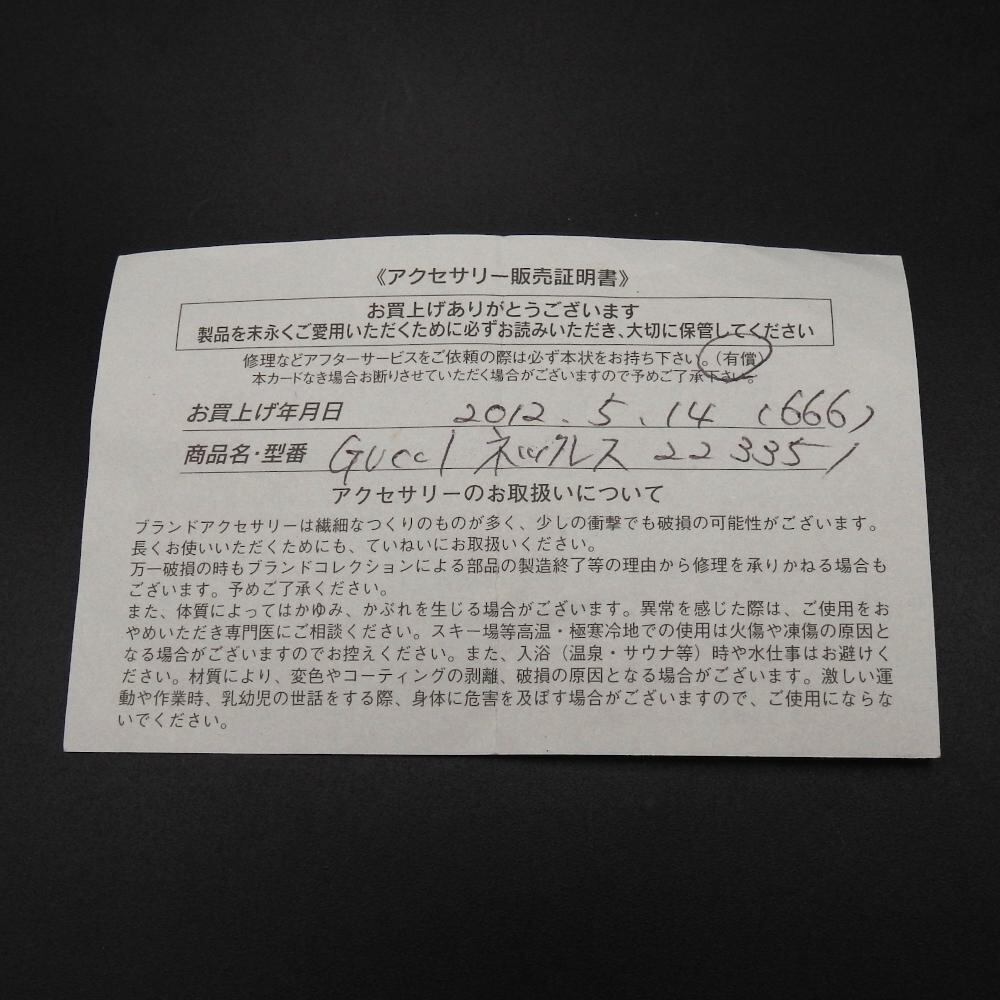 《アクセサリー販売証明書》
お買上げありがとうございます
製品を末永くご愛用いただくために必ずお読みいただき、大切に保管してください
修理などアフターサービスをご依頼の際は必ず本状をお持ち下さい。(有償)
本カードなき場合お断りさせていただく場合がございますので予めご了承下さい。
お買上げ年月日 2012.5.14 (666)
商品名・型番 GUCCI ネックレス 223351
アクセサリーのお取扱いについて
ブランドアクセサリーは繊細なつくりのものが多く、少しの衝撃でも破損の可能性がございます。
長くお使いいただくためにも、ていねいにお取扱いください。
万一破損の時もブランドコレクションによる部品の製造終了等の理由から修理を承りかねる場合も
ございます。予めご了承ください。
また、体質によってはかゆみ、かぶれを生じる場合がございます。異常を感じた際は、ご使用をお
やめいただき専門医にご相談ください。スキー場等高温・極寒冷地での使用は火傷や凍傷の原因と
なる場合がございますのでお控えください。また、入浴（温泉・サウナ等）時や水仕事はお避けく
ださい。材質により、変色やコーティングの剥離、破損の原因となる場合がございます。激しい運
動や作業時、乳幼児の世話をする際、身体に危害を及ぼす場合がございますので、ご使用にならな
いでください。